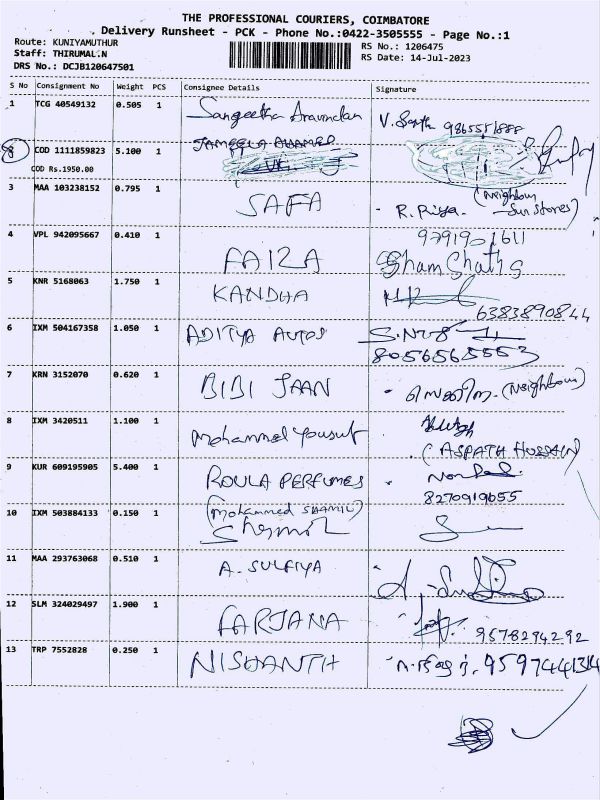 THE PROFESSIONAL COURIERS, COIMBATORE
Delivery Runsheet - PCK - Phone No.:0422-3505555 - Page No.:1
Route: KUNIYAMUTHUR
Staff: THIRUMAL.N
DRS No.: DCJB120647501
RS No.: 1206475
RS Date: 14-Jul-2023
S No Consignment No Weight PCS Consignee Details Signature
1 TCG 40549132 0.505 1 Sangeetha Aravindan
8 COD 1111859823 5.100 1 JAMEELA AHAMED
COD Rs.1950.00
3 MAA 103238152 0.795 1 SAFA R. Priya. (Neighbour Sun Stores)
4 VPL 942095667 0.410 1 FAIZA 9791901611
5 KNR 5168063 1.750 1 KANDHA 6383890844
6 IXM 504167358 1.050 1 ADITYA AUTOS
8056565553
7 KRN 3152070 0.620 1 BIBI JAAN (Neighbour)
8 IXM 3420511 1.100 1 Mohammed Yousuf
(ASPATH HUSSAIN)
9 KUR 609195905 5.400 1 ROULA PERFUMES
8270919055
10 IXM 503884133 0.150 1 (Mohammed SHAMIL)
11 MAA 293763068 0.510 1 A. SULFIYA
12 SLM 324029497 1.900 1 FARJANA 9578294292
13 TRP 7552828 0.250 1 NISHANTH 9597441314